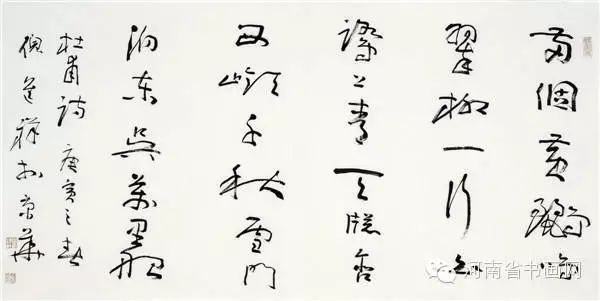 兩個黃鸝鳴
翠柳一行白
鷺上青天窗含
西嶺千秋雪門
泊東吳萬里船
杜甫詩 庚寅之春
倪進祥於京華
河南省书画网